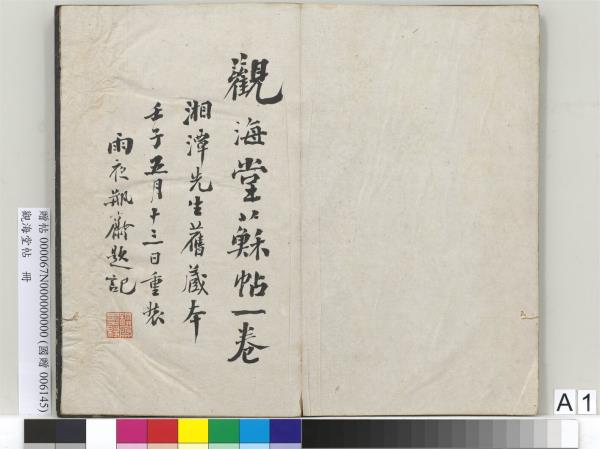 觀海堂蘇帖一卷
湘潭先生舊藏本
壬子五月十三日重裝
雨夜瓶齋題記
贈帖 000067N000000000 (國贈 006145)
觀海堂帖　冊
A 1